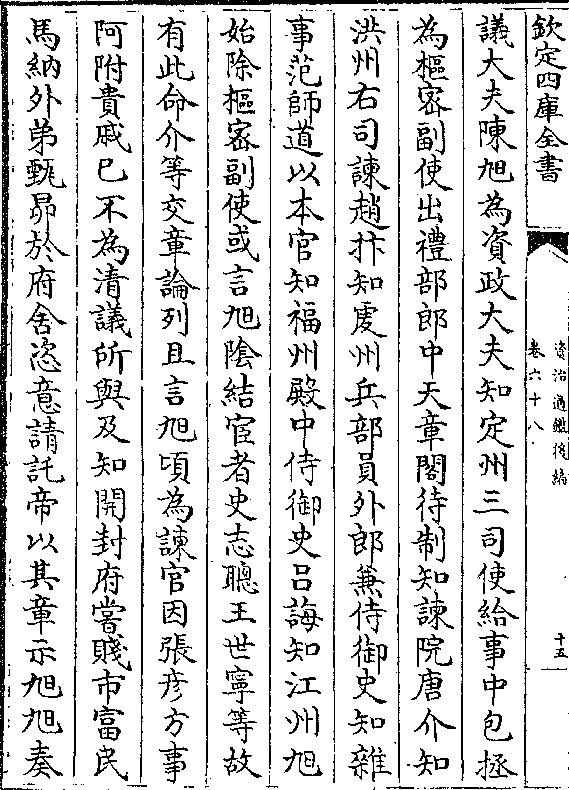 欽定四庫全書
資治通鑑後編
卷六十八
十五
議大夫陳旭為資政大夫知定州三司使給事中包拯
為樞密副使出禮部郎中天章閣待制知諫院唐介知
洪州右司諫趙抃知䖍州兵部員外郎兼侍御史知雜
事范師道以本官知福州殿中侍御史吕誨知江州旭
始除樞密副使或言旭陰結宦者史志聰王世寧等故
有此命介等交章論列且言旭頃為諫官因張彦方事
阿附貴戚已不為清議所與及知開封府嘗賤市富民
馬納外弟甄昴於府舍恣意請託帝以其章示旭旭奏